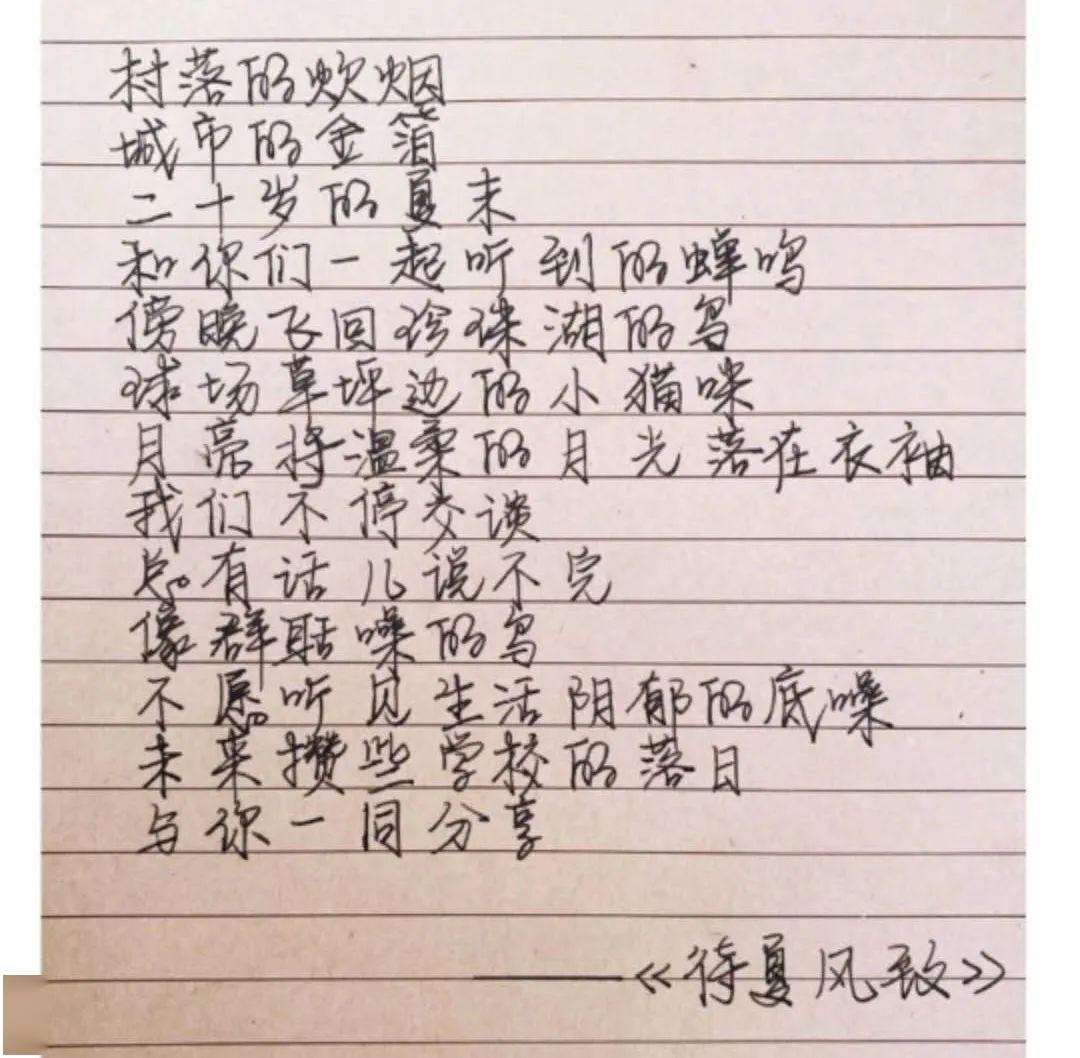 村落的炊烟
城市的金箔
二十岁的夏末
和你们一起听到的蝉鸣
傍晚飞回珍珠湖的鸟
球场草坪边的小猫咪
月亮将温柔的月光落在衣袖
我们不停交谈
总有话儿说不完
像群聒噪的鸟
不愿听见生活阴郁的底噪
未来攒些学校的落日
与你一同分享
——《待夏风致》